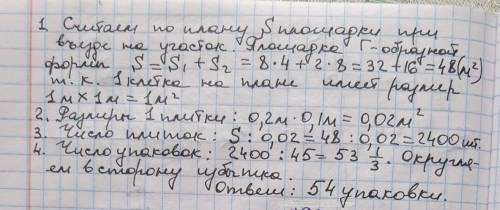 1. Считаем по плану S площадки при
въезде на участок. Площадка Г-образной
формы S = S₁ + S₂ = 8·4 + 2·8 = 32 + 16 = 48 (м²)
т.к. 1 клетка на плане имеет размер
1м × 1м = 1м²
2. Размеры 1 плитки: 0,2м · 0,1м = 0,02м²
3. Число плиток: S : 0,02 = 48 : 0,02 = 2400 шт.
4. Число упаковок: 2400 : 45 = 53 1/3. Округля-
ем в сторону избытка.
Ответ: 54 упаковки.